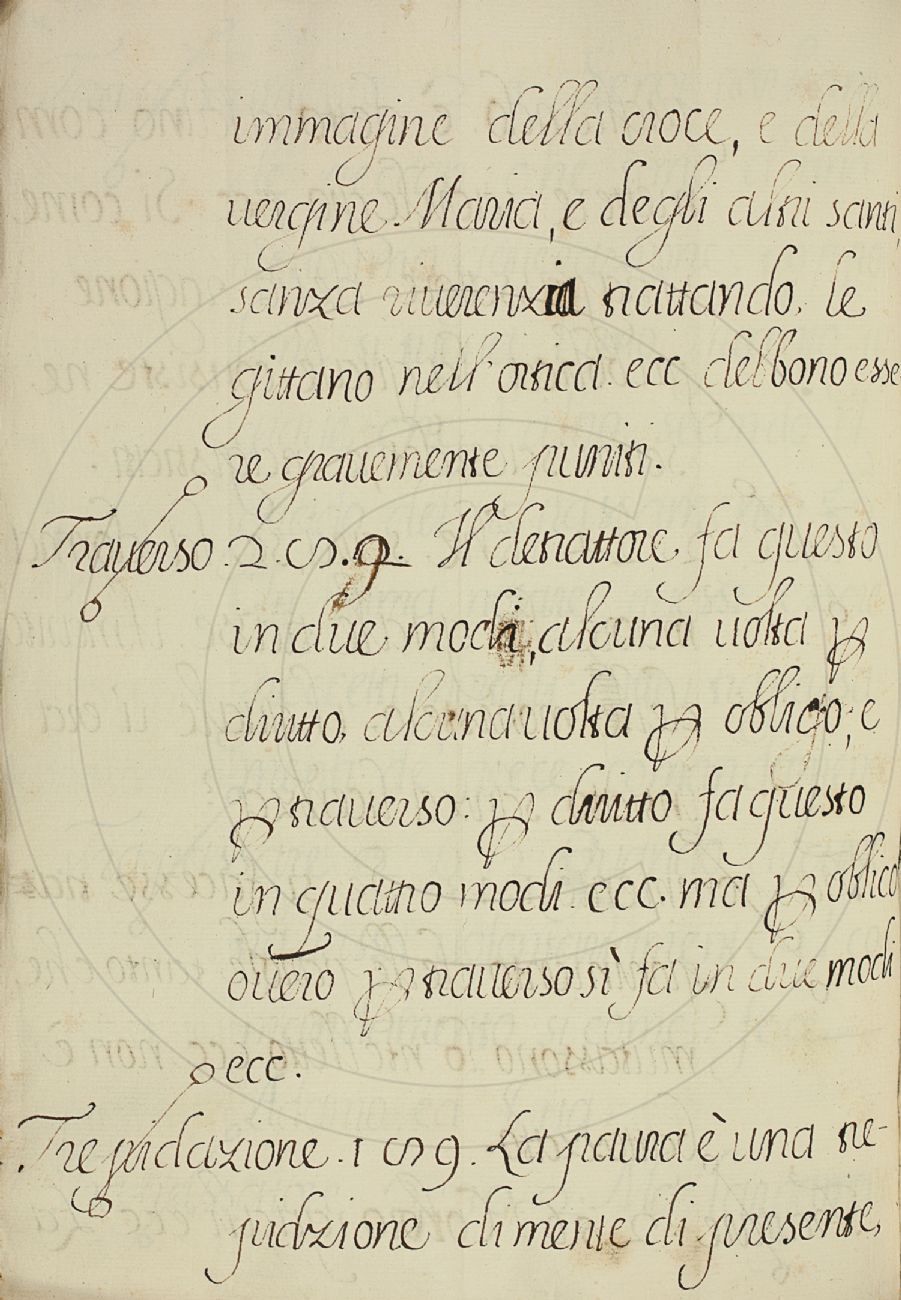 immagine della croce, e della
vergine Maria, e degli altri santi,
sanza riverenzia trattando, le
gittano nell'ortica. ecc debbono esse
re gravemente puniti.
Traverso. 2. S. 9. Il detrattore fa questo
in due modi, alcuna volta ꝑ
diritto, alcuna volta ꝑ obbligo, e
ꝑ traverso: ꝑ diritto fa questo
in quattro modi. ecc. ma ꝑ oblico
overo ꝑ traverso sì fa in due modi
ecc.
Trepidazione. 1 S 9. La paura è una tre-
pidzione di mente di presente,